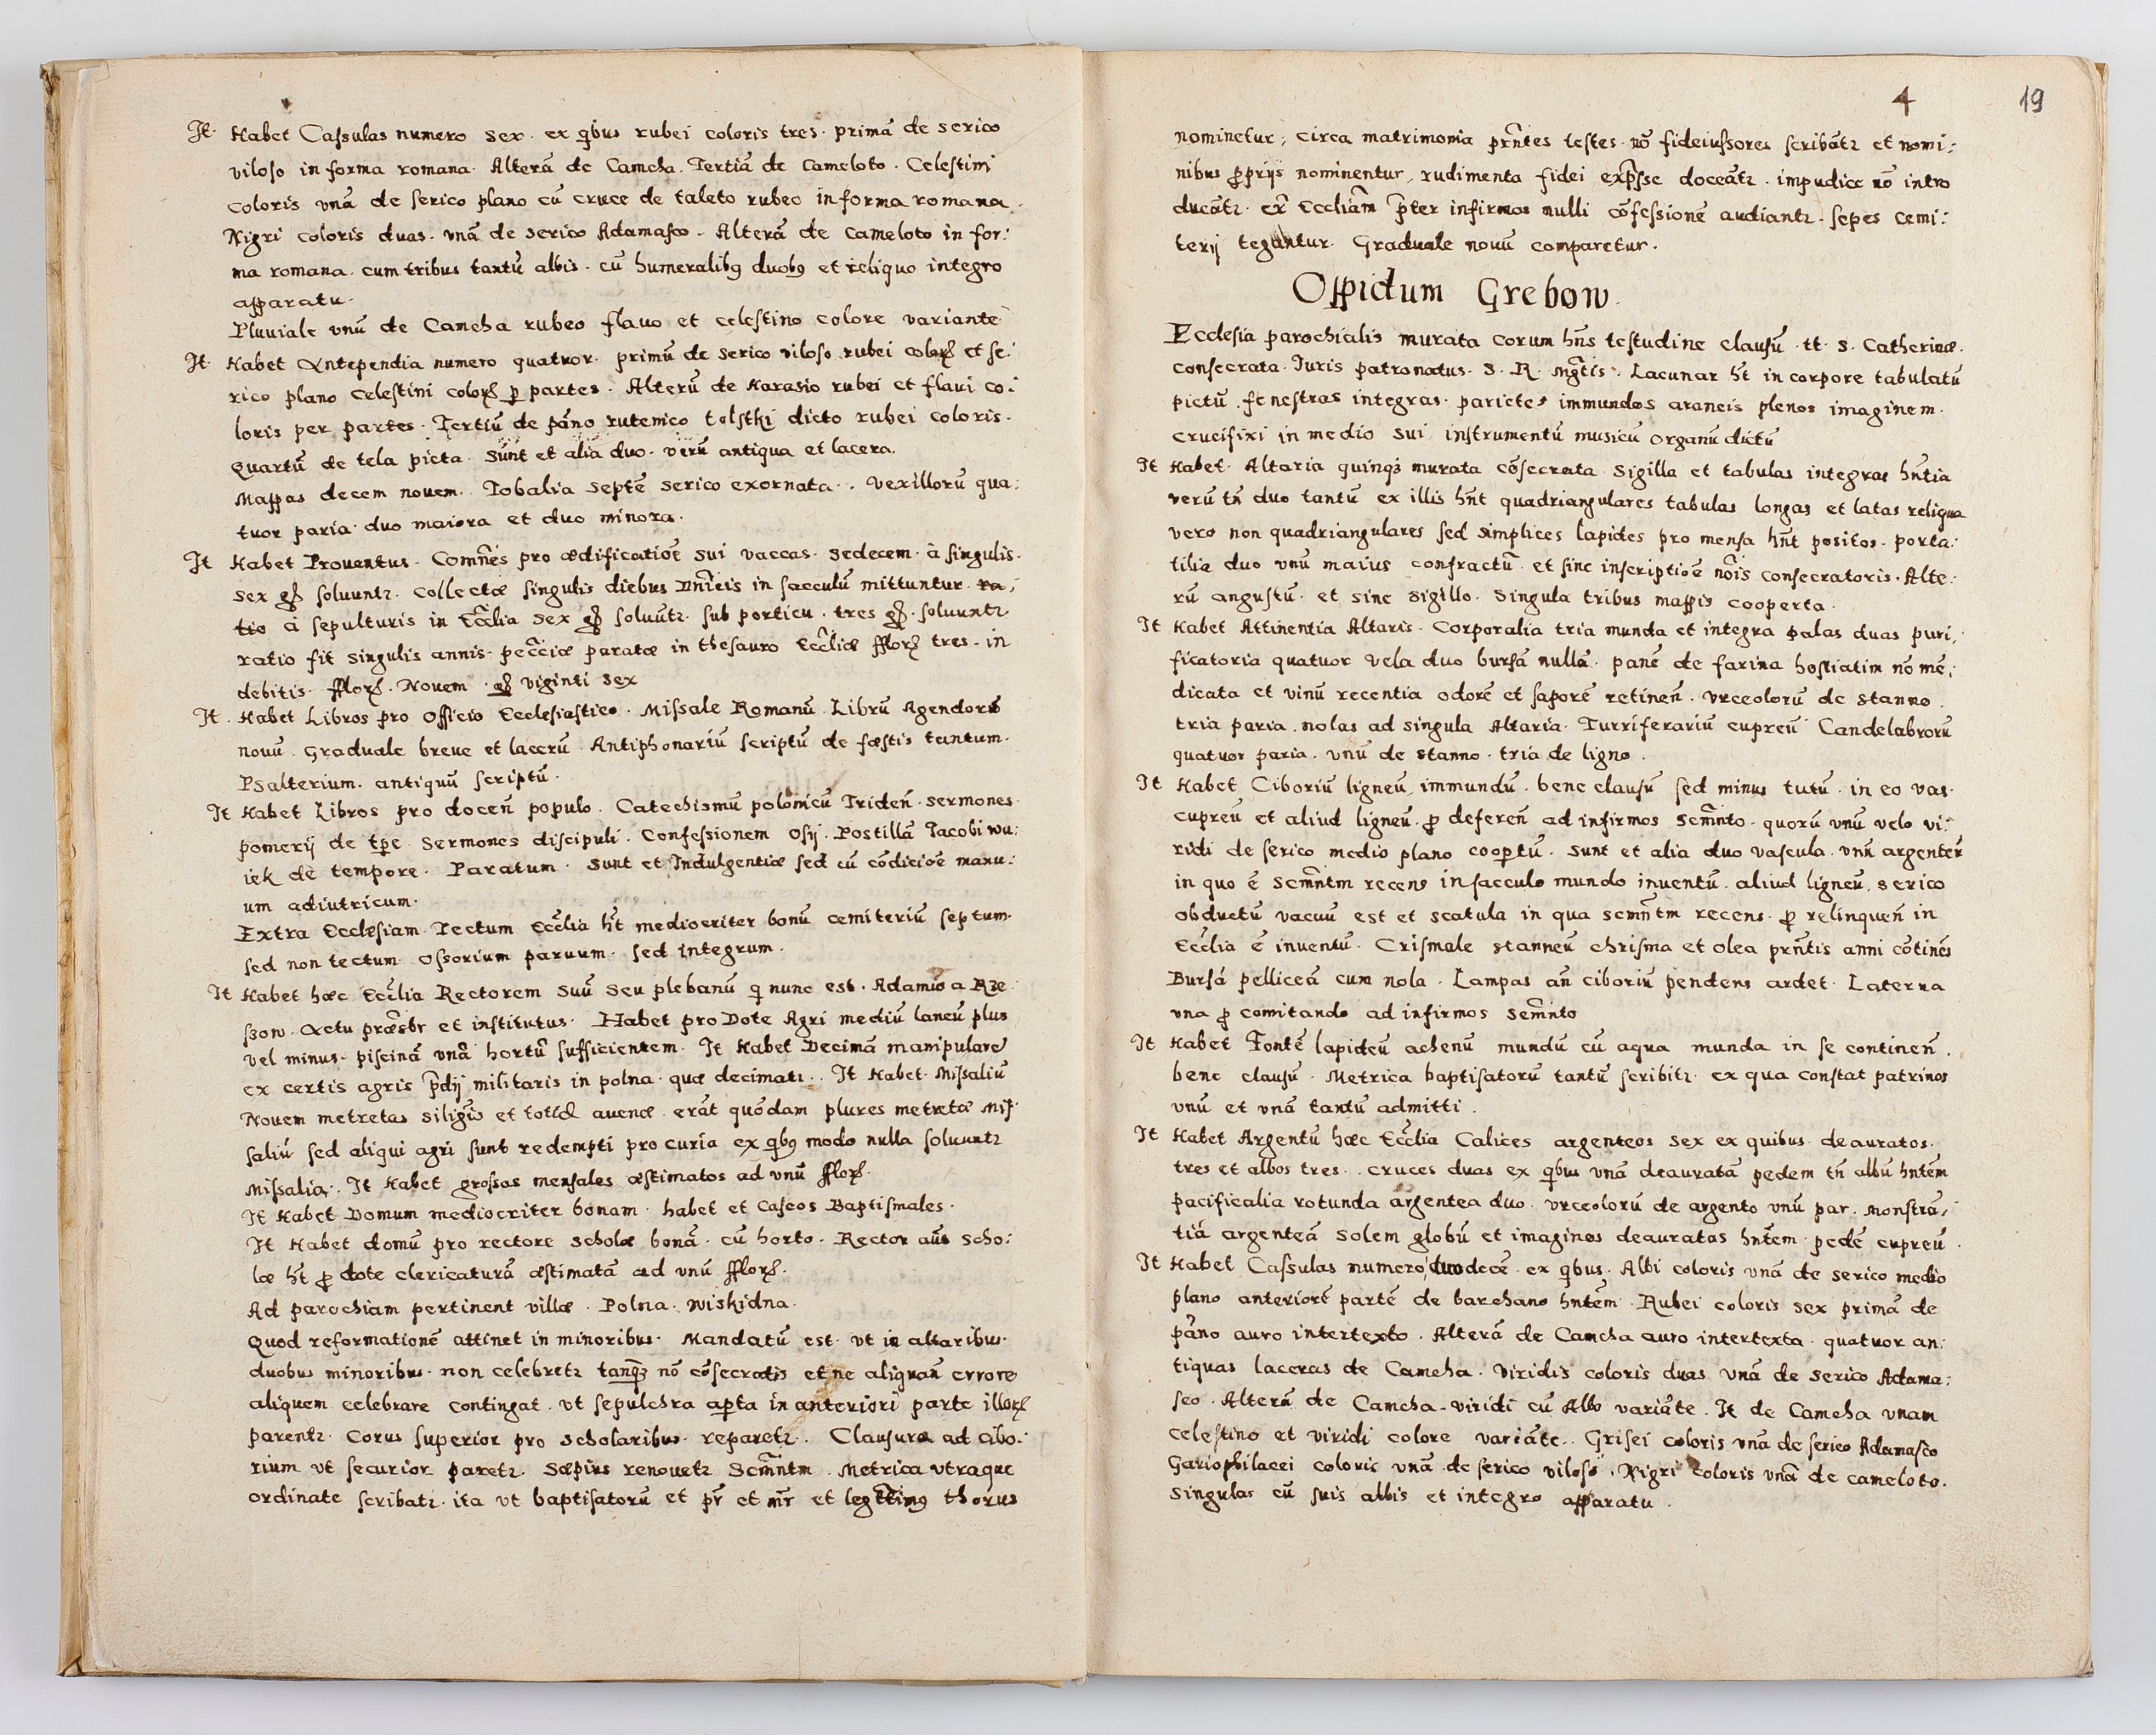 It. Habet Casulas numero sex. ex qbus rubei coloris tres. primā de serico
viloso in forma romana. Alterā de Camcha. Tertiā de Cameloto. Celestini
coloris vnā de serico plano cū cruce de taleto rubeo in forma romana.
Nigri coloris duas. vnā de serico Adamasco. Alterā de Cameloto in for:
ma romana. cum tribus tantū albis. cū humeralibq duobq et reliquo integro
apparatu.
Pluuiale vnū de Camcha rubeo flauo et celestino colore variante
It. Habet Antependia numero quatuor. primū de serico viloso rubei colorꝭ et se:
rico plano celestini colorꝭ ꝑ partes. Alterū de Harasio rubei et flaui co:
loris per partes. Tertiū de pāno rutenico tolstki dicto rubei coloris.
Quartū de tela picta. Sūnt et alia duo. verū antiqua et lacera.
Mappas decem nouem. Tobalia septē serico exornata. Vexillorū qua:
tuor paria. duo maiora et duo minora.
It Habet Prouentus. Comnēs pro ædificatiōe sui vaccas. sedecem. à singulis.
sex gꝭ soluuntꝛ. Collectæ singulis diebus Dnīcis in sacculū mittuntur. ra:
tio à sepulturis in Ecclīa sex gꝭ soluūtꝛ. sub porticu. tres gꝭ. soluuntꝛ
ratio fit singulis annis. peccīæ paratæ in thesauro Ecclīæ fflorꝭ tres. in
debitis. fflorꝭ. Nouem. gꝭ viginti sex
It. Habet Libros pro Officio Ecclesiastico. Missale Romanū. Librū Agendorū
nouū. Graduale breue et lacerū. Antiphonariū scriptū de fæstis tantum.
Psalterium. antiquū scriptū.
It Habet Libros pro doceñ populo. Catechismū polonicū Trideñ. sermones
pomerij de tpe. Sermones discipuli. Confessionem Osij. Postillā Jacobi wu:
iek de tempore. Paratum. Sunt et Indulgentiæ sed cū cōdiciōe manu:
um adiutricum.
Extra Ecclesiam. Tectum Ecclīa hēt mediocriter bonū cemiteriū septum.
sed non tectum. Ossorium paruum. sed integrum.
It Habet hæc Ecclīa Rectorem suū seu plebanū q nunc est. Adamus a Rze
szow. Actu præsbr et institutus. Habet pro Dote Agri mediū laneū plus
vel minus. piscinā vnā hortū sufficientem. It Habet Decimā manipularē
ex certis agris p̄dij militaris in polna. quæ decimatꝛ. It Habet. Missaliū
Nouem metretas siligīs et totid avenæ. erāt quōdam plures metretæ Mis
saliū sed aliqui agri sunt redempti pro curia ex qbq modo nulla soluuntꝛ
Missalia. It Habet grossos mensales æstimatos ad vnū fflorꝭ.
It Habet Domum mediocriter bonam. habet et Caseos Baptismales.
It Habet domū pro rectore scholæ bonā. cū horto. Rector aūs scho:
læ hēt ꝓ dote clericaturā æstimatā ad vnū fflorꝭ.
Ad parochiam pertinent villæ. Polna. Wiskidna.
Quod reformationē attinet in minoribus. Mandatū est. vt in altaribus.
duobus minoribus. non celebretꝛ tanqꝫ nō cōsecratis et ne aliquan errore
aliquem celebrare contingat. vt sepulchra apta in anteriori parte illorꝭ
parentꝛ. Corus superior pro scholaribus. reparetꝛ. Clausura ad cibo:
rium vt securior paretꝛ. Sæpius renouetꝛ Scmn̄tm. Metrica vtraque
ordinate scribatꝛ. ita vt baptisatorū et pr̄ et mr̄ et legttimq thorus
4 19
nominetur, circa matrimonia prn̄tes testes. nō fideiussores scribātꝛ et nomi:
nibus ꝓprijs nominentur, rudimenta fidei exp̄sse doceātꝛ. impudicę nō intro
ducātꝛ. ex̄ Eccliām p̄ter infirmos nulli cōfessionē audiantꝛ. sepes cemi:
terij tegantur. Graduale nouū comparetur.
Oppidum Grebow.
Ecclesia parochialis murata corum hn̄s testudine clausū. tt. S. Catherinæ.
consecrata. Juris patronatus. S. R. Mgtīs. Lacunar hēt in corpore tabulatū
pictū. fenestras integras. parietes immundos araneis plenos imaginem.
crucifixi in medio sui, instrumentū musicū organū dictū
It Habet. Altaria quinqꝫ murata cōsecrata. Sigilla et tabulas integras hn̄tia
verū tn̄ duo tantū ex illis hn̄t quadriangulares tabulas longas et latas reliqua
vero non quadriangulares sed simplices lapides pro mensa hn̄t positos. porta:
tilia duo vnū maius confractū. et sine inscriptiōe nōis consecratoris. Alte:
rū angustū. et sine sigillo. Singula tribus mappis cooperta.
It Habet Attinentia Altaris. Corporalia tria munda et integra palas duas puri:
ficatoria quatuor vela duo bursā nullā. panē de farina hostiatim nō mē:
dicata et vinū recentia odorē et saporē retineñ. vrceolorū de stanno.
tria paria. nolas ad singula Altaria. Turriferariū cupreū Candelabrorū
quatuor paria. vnū de stanno. tria de ligno.
It Habet Ciboriū ligneū, immundū. bene clausū sed minus tutū. in eo vas.
cupreū et aliud ligneū. ꝓ defereñ ad infirmos Scmn̄to. quorū vnū velo vi:
ridi de serico medio plano cooptū. Sunt et alia duo vascula. vnū argenteū
in quo ē Scmn̄tm recens in sacculo mundo inventū. aliud ligneū. serico
obductū vacuū est et scatula in qua scmn̄tm recens. ꝓ relinqueñ in
Ecclīa ē inventū. Crismale stanneū chrisma et olea prn̄tis anni cōtinēs
Bursā pelliceā cum nola. Lampas añ ciboriū pendens ardet. Laterna
vna ꝓ comitando ad infirmos Scmn̄to
It Habet Fontē lapideū achenū mundū cū aqua munda in se contineñ.
bene clausū. Metrica baptisatorū tantū scribitꝛ. ex qua constat patrinos
vnū et vnā tantū admitti.
It Habet Argentū hæc Ecclīa Calices argenteos sex ex quibus. deauratos.
tres et albos tres. cruces duas ex qbus vnā deauratā pedem tn̄ albū hn̄tem
pacificalia rotunda argentea duo. vrceolorū de argento vnū par. Monstrā:
tiā argenteā Solem globū et imagines deauratas hn̄tem. pedē cupreū.
It Habet Casulas numero duodecē. ex qbus. Albi coloris vnā de serico medio
plano anteriorē partē de barchano hn̄tem. Rubei coloris sex primā de
pāno auro intertexto. Alterā de Camcha auro intertexta. quatuor an:
tiquas laceras de Camcha. Viridis coloris duas vnā de serico Adama:
sco. Alterā de Camcha. viridi cū Albo variāte. It de Camcha vnam
celestino et viridi colore variāte. Grisei coloris vnā de serico Adamasco
Gariophilacei coloris vnā de serico viloso. Nigri coloris vnā de cameloto.
Singulas cū suis albis et integro apparatu.